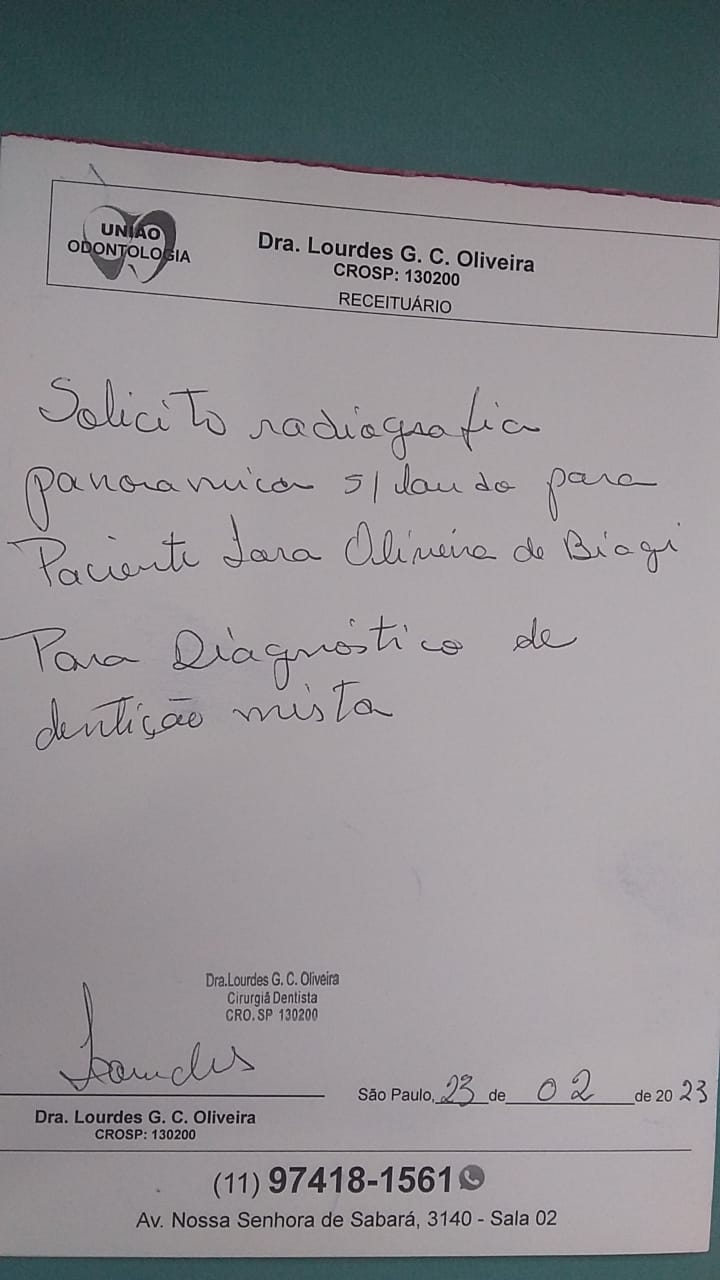 UNIÃO
ODONTOLOGIA
Dra. Lourdes G. C. Oliveira
CROSP: 130200
RECEITUÁRIO
Solicito radiografia
panoramica s/ laudo para
Paciente Iara Oliveira de Biagi
Para Diagnóstico de
dentição mista
Dra.Lourdes G. C. Oliveira
Cirurgiã Dentista
CRO.SP 130200
Lourdes
São Paulo, 23 de 02 de 2023
Dra. Lourdes G. C. Oliveira
CROSP: 130200
(11) 97418-1561
Av. Nossa Senhora de Sabará, 3140 - Sala 02